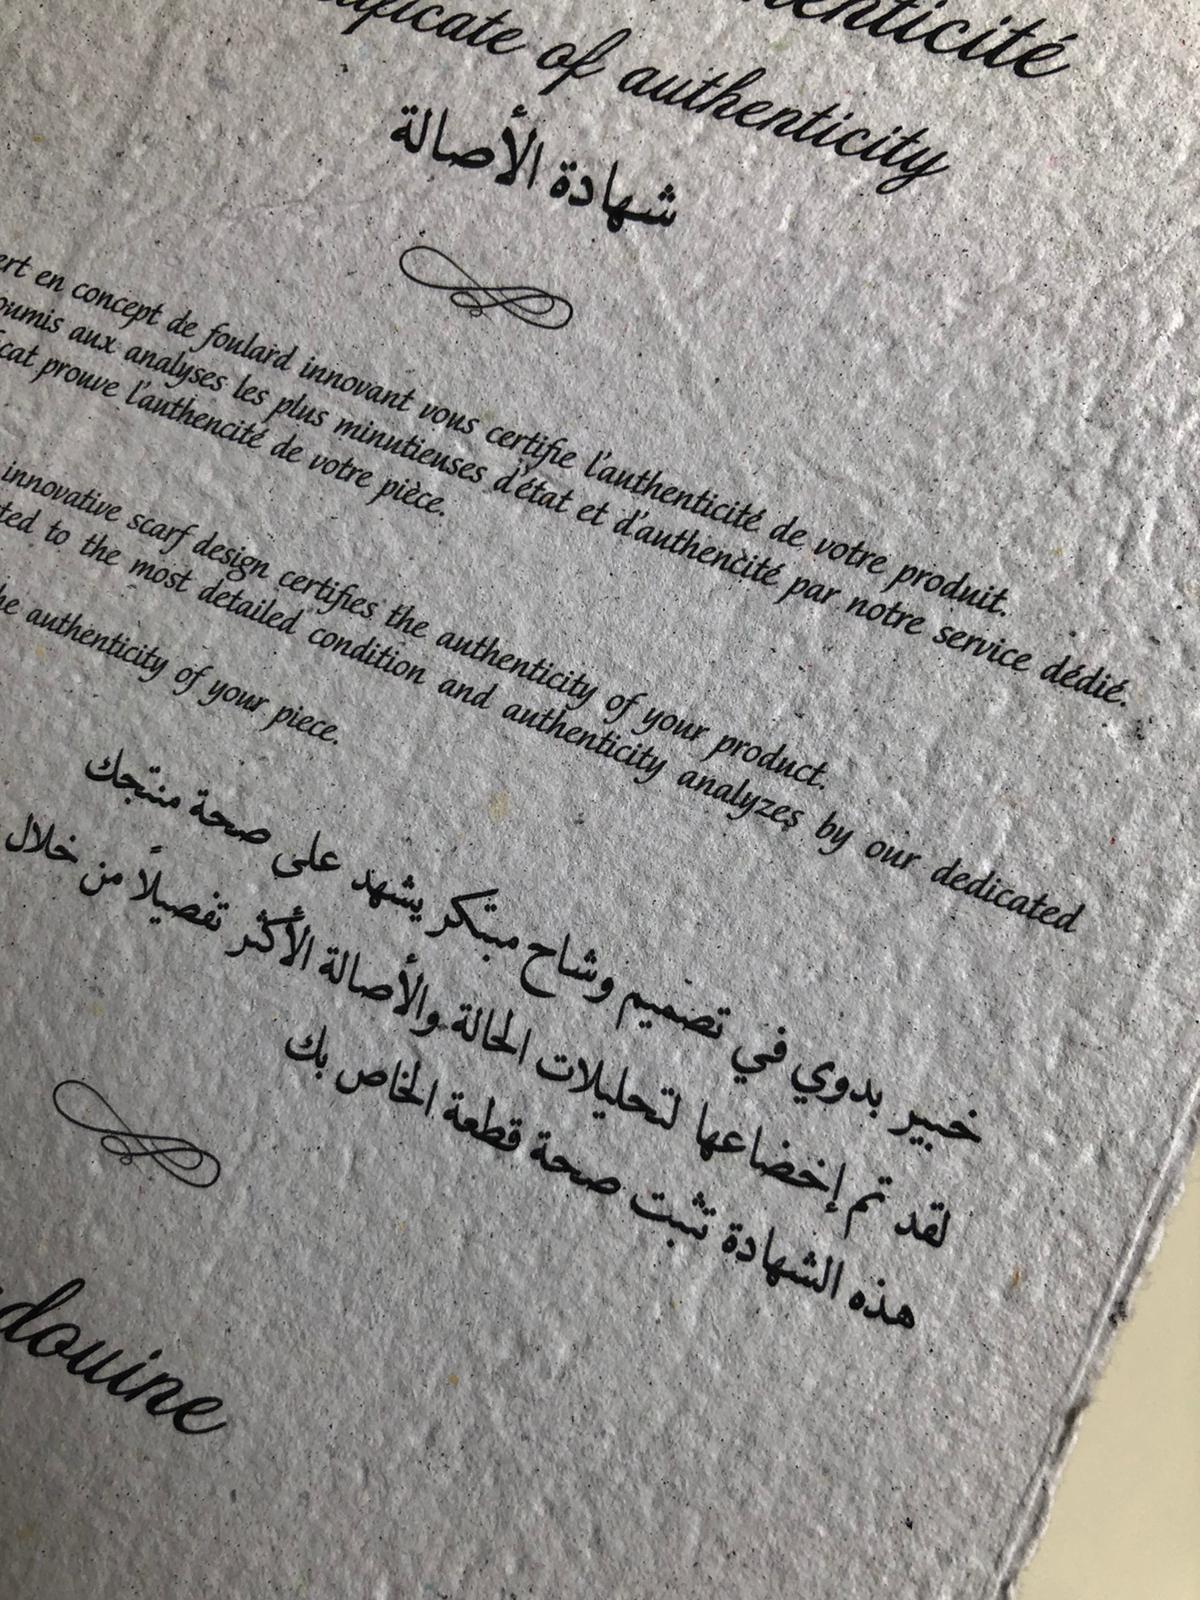 of authenticity
شهادة الأصالة
en concept de foulard innovant vous certifie l'authenticité de votre produit.
aux analyses les plus minutieuses d'état et d'authencité par notre service dédié.
prouve l'authencité de votre pièce.
innovative scarf design certifies the authenticity of your product.
to the most detailed condition and authenticity analyzes by our dedicated
authenticity of your piece.
خبير بدوي في تصميم وشاح مبتكر يشهد على صحة منتجك
لقد تم إخضاعها لتحليلات الحالة والأصالة الأكثر تفصيلاً من خلال
هذه الشهادة تثبت صحة قطعة الخاص بك